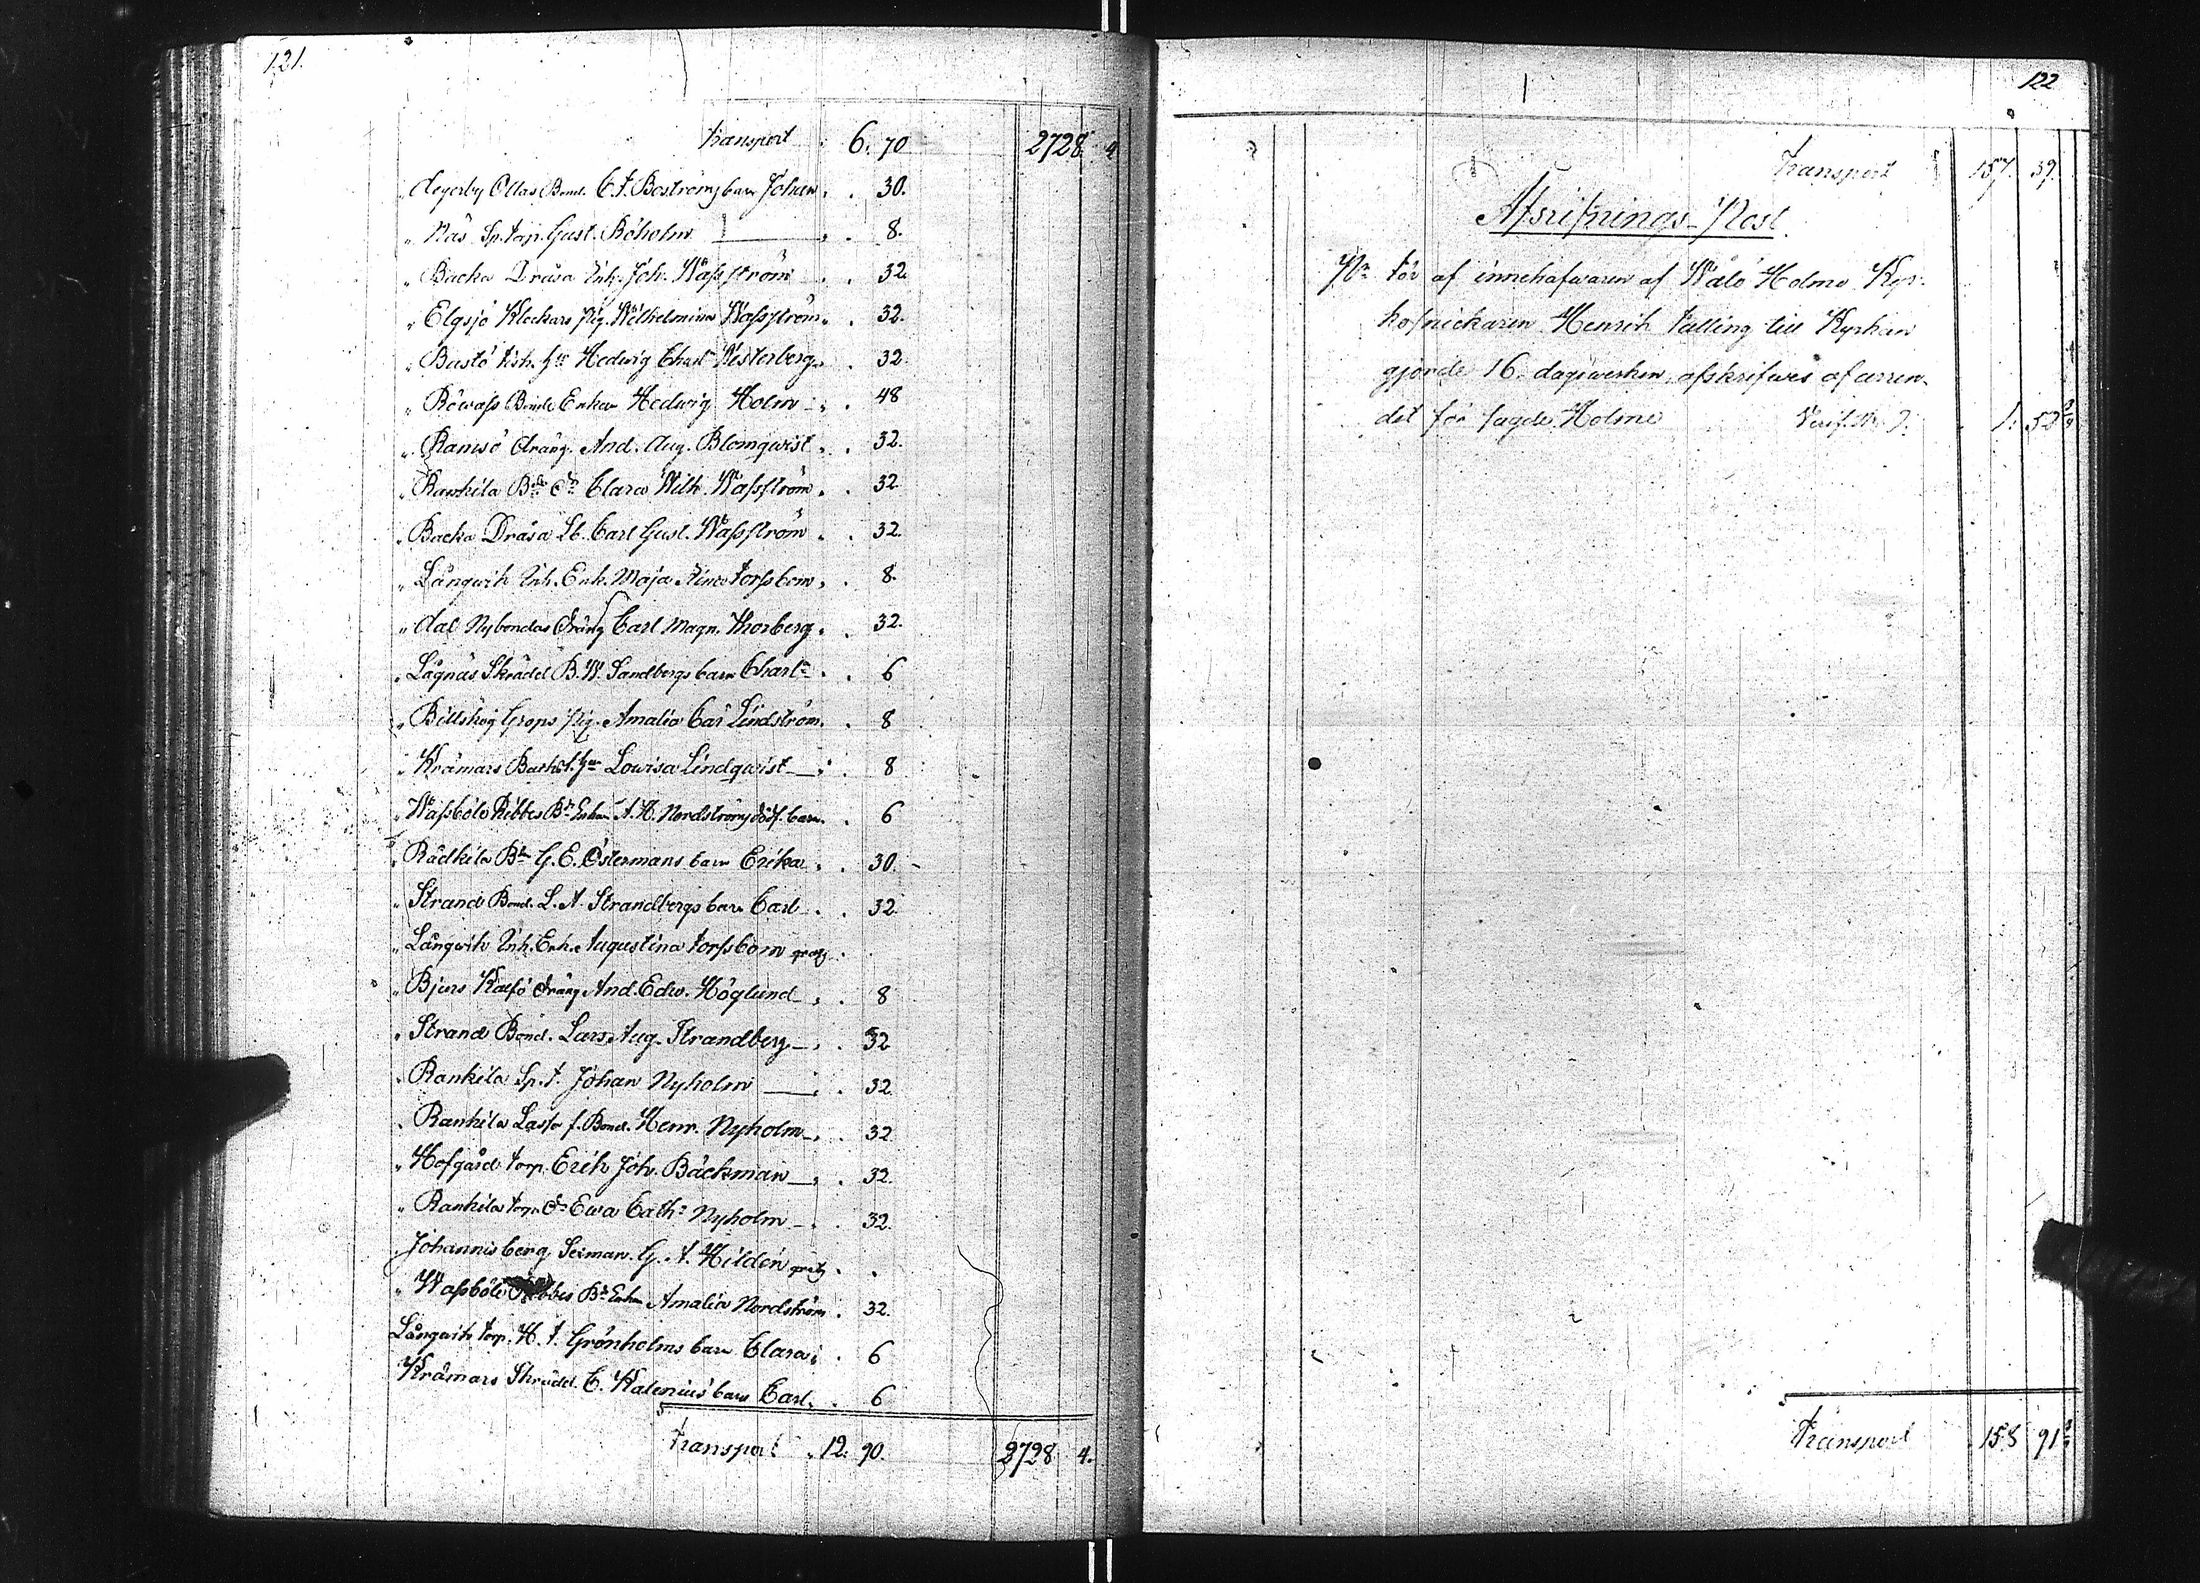 121.
Transport . 6. 70 2728. 4
" Degerby Ollas Bond. C. A. Boströms barn Johan . . 30.
" Näs Sp. torp. Gust. Röholm — . . 8.
" Backa Dråsa Inh. Joh. Wassström . . 32.
" Elgsjö Klockars Pig. Wilhelmina Wassström . . 32.
" Bastö Fisk. Hu Hedwig Charl. Westerberg . . 32
" Röwass Bonde Enkan Hedwig Holm — . . 48
" Ramsö dräng. And. Aug. Blomqwist . . 32.
" Rankila Bde Dr Clara Wilh. Wassström . . 32.
" Backa Dråsa Lb. Carl Gust. Wassström . . 32.
" Långwik Inh. Enk. Maja Stina Forssbom . . 8.
" Dal Nybondas dräng Carl Magn. Thorberg . . 32.
" Lågnäs Skrädd B. W. Sandbergs barn Charl. . . 6
" Billskog Grops Pig. Amalia Car Lindström . . 8
" Krämars Backst. Hu Lowisa Lindqwist — . . 8
" Wassböle Ribbes Bd Enkan A. H. Nordströms dödf. barn . . 6
" Rådkila Bd G. E. Östermans barn Erika . . 30.
" Strand Bond. L. A. Strandbergs barn Carl . . 32.
" Långwik Inh. Enk. Augustina Forssbom gratis . .
" Bjurs Kalfö dräng And. Edw. Höglund . . 8
" Strand Bond. Lars Aug. Strandberg — . . 32
" Rankila Sp. t. Johan Nyholm — . . 32
" Rankila Lasse f. Bond. Henr. Nyholm — . . 32
" Hofgård torp. Erik Joh. Bäckman — . . 32.
" Rankila torp. Dr Ewa Cath. Nyholm — . . 32.
Johannisberg Seiman. G. A. Hildén gratis . .
" Wassböle Ribbes Bd Enkn Amalia Nordström . 32.
Långwik torp. H. A. Grönholms barn Clara . . 6
Krämars Skrädd. E. Kalenius barn Carl . . 6
Transport . 12. 90. 2728 4.
122
Transport 157. 39.
Afskrifnings-Post.
Pr för af innehafwaren af Wålö Holme Kyr-
kosnickaren Henrik Talling till Kyrkan
gjorde 16 dagswerken, afskrifwes af arren-
det för sagde Holme Verif. N. 7. 1. 52
Transport 158 91